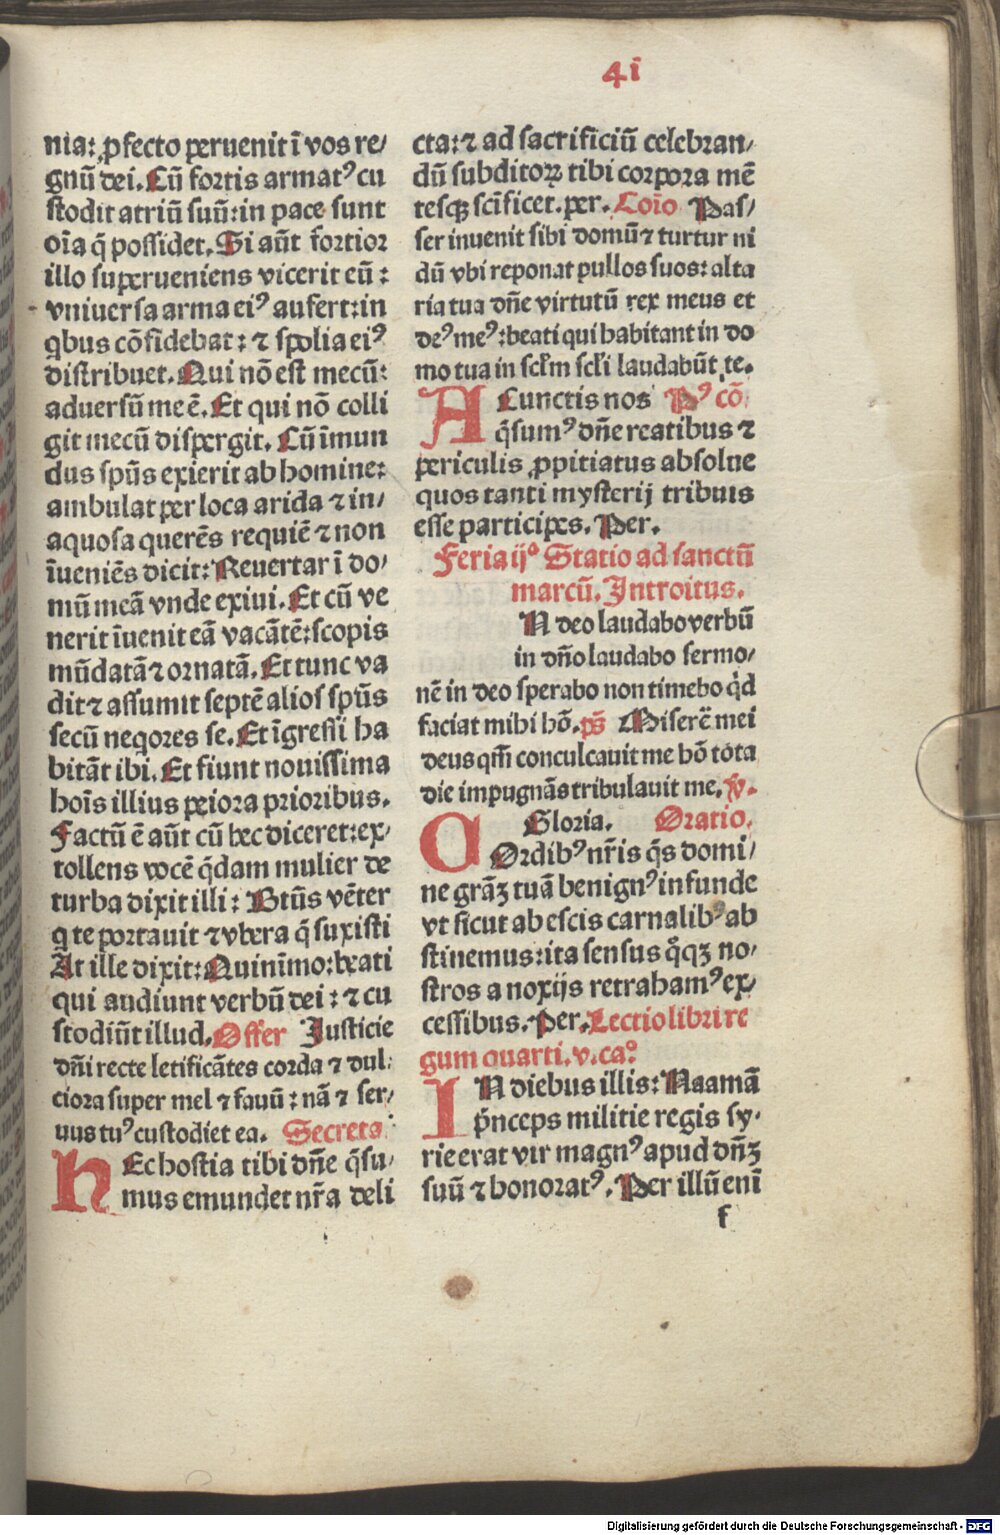 41
nia: ꝓfecto peruenit ī vos re/
gnū dei. Cū fortis armatꝰ cu
ſtodit atriū ſuū: in pace ſunt
oīa q̄ poſſidet. Si aūt fortior
illo ſuperueniens vicerit eū :
vniuerſa arma eiꝰ aufert: in
qͥbus cōfidebat: ⁊ ſpolia eiꝰ
diſtribuet. Qui nō eſt mecū:
aduerſū me ē. Et qui nō colli
git mecū diſpergit. Cū īmun
dus ſpūs exierit ab homine:
ambulat per loca arida ⁊ in/
aquoſa querēs requiē ⁊ non
īueniēs dicit: Reuertar ī do/
mū meā vnde exiui. Et cū ve
nerit īuenit eā vacātē: ſcopis
mūdatā ⁊ ornatā. Et tunc va
dit ⁊ aſſumit ſeptē alios ſpūs
ſecū neqores ſe. Et īgreſſi ha
bitāt ibi. Et fiunt nouiſſima
hoīs illius peiora prioribus.
Factū ē aūt cū hec diceret: ex/
tollens vocē q̄dam mulier de
turba dixit illi : Btūs vēter
q te portauit ⁊ vbera q̄ ſuxiſti
At ille dixit: Quinīmo: beati
qui audiunt verbū dei : ⁊ cu
ſtodiūt illud. Offer Juſticie
dn̄i recte letificātes corda ⁊ dul:
ciora ſuper mel ⁊ fauū : nā ⁊ ſer/
uus tuꝰ cuſtodiet ea. Secreta
HEc hoſtia tibi dn̄e q̄ſu/
mus emundet nr̄a deli
cta: ⁊ ad ſacrificiū celebran/
dū ſubditoꝝ tibi corpora mē
teſqꝫ ſcīficet. per. Coīo Paſ/
ſer inuenit ſibi domū ⁊ turtur ni
dū vbi reponat pullos ſuos: alta
ria tua dn̄e virtutū rex meus et
deꝰ meꝰ: beati qui habitant in do
mo tua in ſcl̄m ſcl̄i laudabūt te.
A Cunctis nos Pꝰ cō
q̄ſumꝰ dn̄e reatibus ⁊
periculis ꝓpitiatus abſolue
quos tanti myſterij tribuis
eſſe participes. Per.
Feria ijᵃ Statio ad ſanctū
marcū. Introitus.
N deo laudabo verbū
in dn̄o laudabo ſermo/
nē in deo ſperabo non timebo q̇d
faciat mihi hō. pſ̄ Miſerē mei
deus qm̄ conculcauit me hō tota
die impugnās tribulauit me. v̄.
Gloria. Oratio.
COrdibꝰ nr̄is q̄s domi/
ne gr̄aꝫ tuā benignꝰ infunde
vt ſicut ab eſcis carnalibꝰ ab
ſtinemus: ita ſenſus q̄qꝫ no/
ſtros a noxijs retrahamꝰ ex/
ceſſibus. Per. Lectio libri re
gum quarti. v. caº
IN diebus illis: Naamā
p̄nceps militie regis ſy·
rie erat vir magnꝰ apud dn̄ꝫ
ſuū ⁊ honoratꝰ. Per illū enī
f
Digitalisierung gefördert durch die Deutsche Forschungsgemeinschaft - DFG